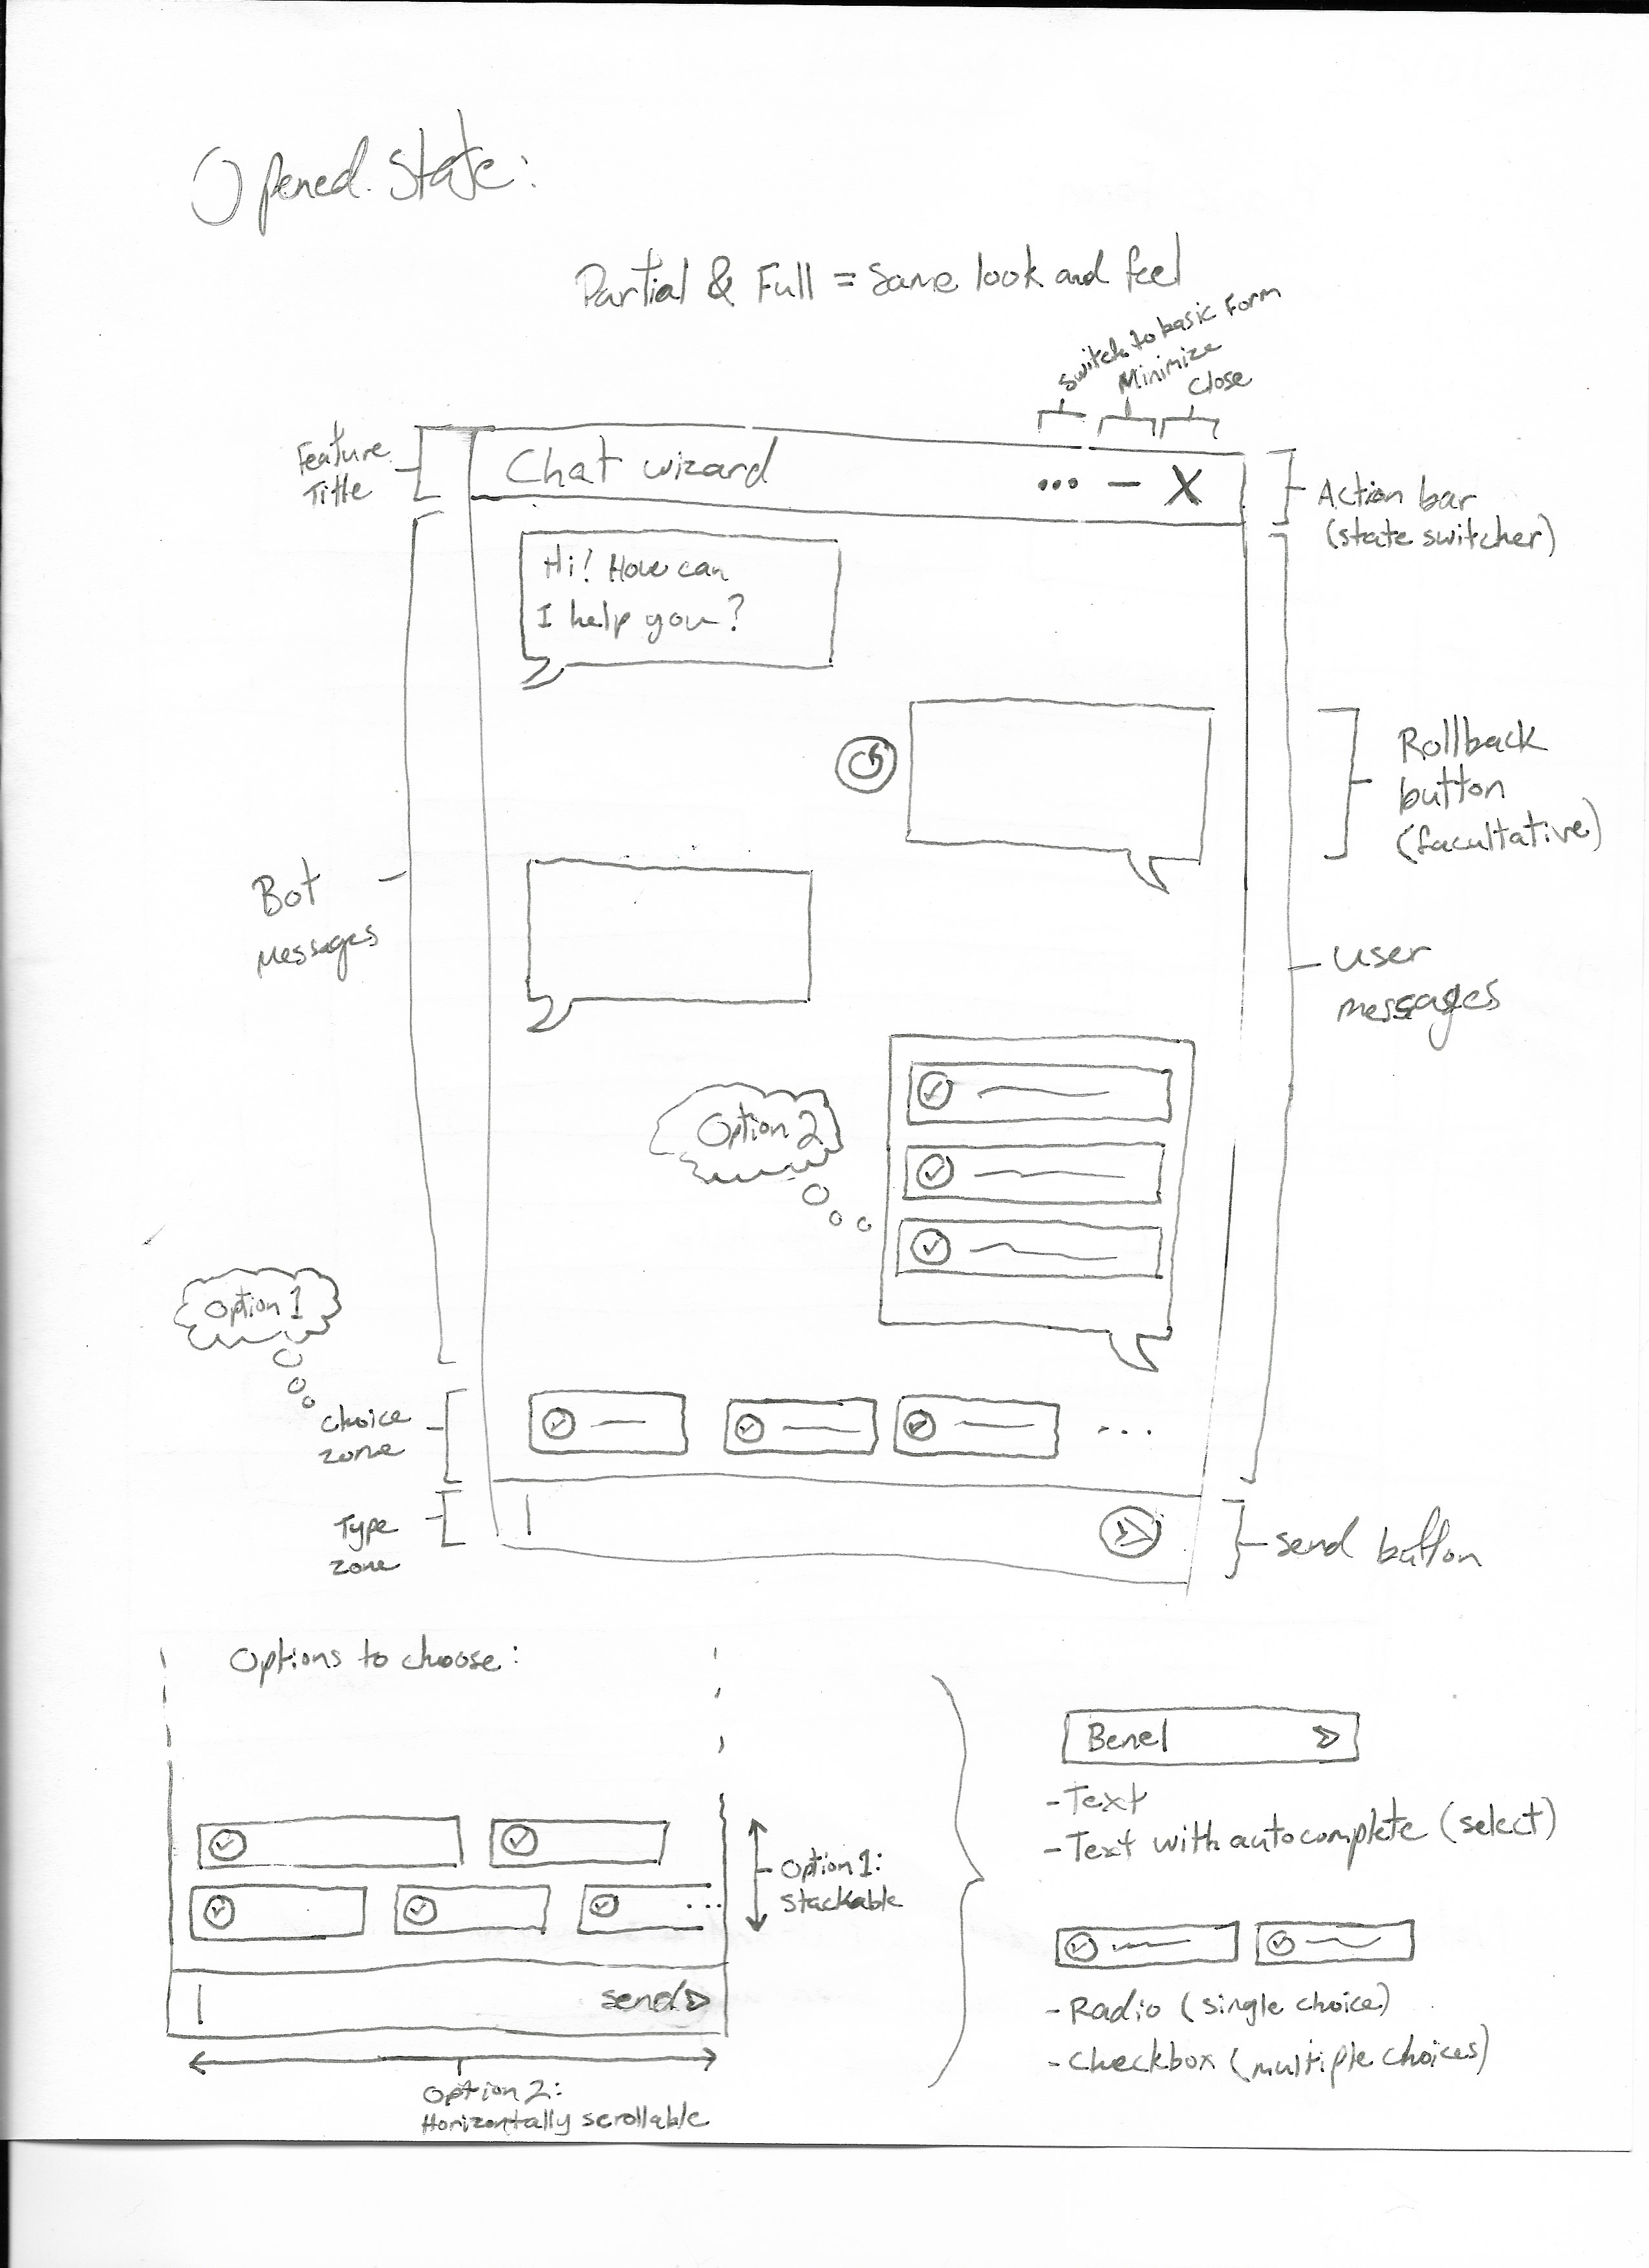 Opened State:
Partial & Full = Same look and feel
switch to basic Form
Minimize
Close
Feature
Title
Chat wizard
... – X
Action bar
(state switcher)
Hi! How can
I help you?
Rollback
button
(facultative)
Bot
Messages
User
messages
Option 2
Option 1
Choice
zone
...
Type
zone
send button
Options to choose:
Option 1:
Stackable
...
send
Option 2:
Horizontally scrollable
Benel
-Text
-Text with autocomplete (select)
-Radio (single choice)
-Checkbox (multiple choices)